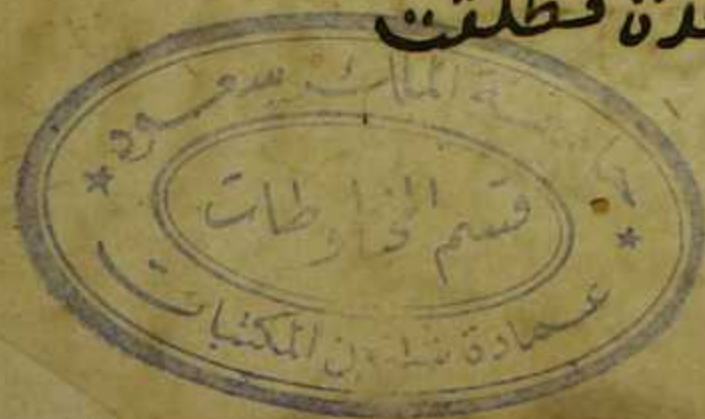 فطلقت
جامعة الملك سعود
قسم المخطوطات
عمادة شئون المكتبات